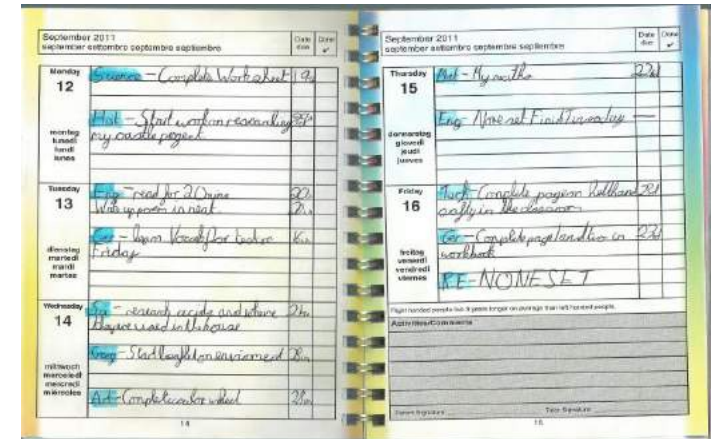 September 2011
september settembre septembre septiembre
Date due
Done
Monday
12
montag
lunedi
lundi
lunes
Science – Complete Worksheet
Hist – Start work on researching
my castle project
Tuesday
13
dienstag
martedi
mardi
martes
Eng – read for 20 mins
Write up poem in neat
Ger – learn Vocab for test on
Friday
Wednesday
14
mittwoch
mercoledi
mercredi
miercoles
Sci – research acids and where
they are used in the house
Geog – Start leaflet on enviroment
Art – Complete color wheel
14
September 2011
september settembre septembre septiembre
Date due
Done
Thursday
15
donnerstag
giovedi
jeudi
jueves
Mat – My maths
Eng – None set Finish Tuesday
Friday
16
freitag
venerdi
vendredi
viernes
Tech – Complete page on Health and
safty in the classroom
Ger – Complete page 1 and two in
workbook
RE – NONE SET
Right handed people live 9 years longer on average than left handed people.
Activities/Comments
Parent Signature
Tutor Signature
15